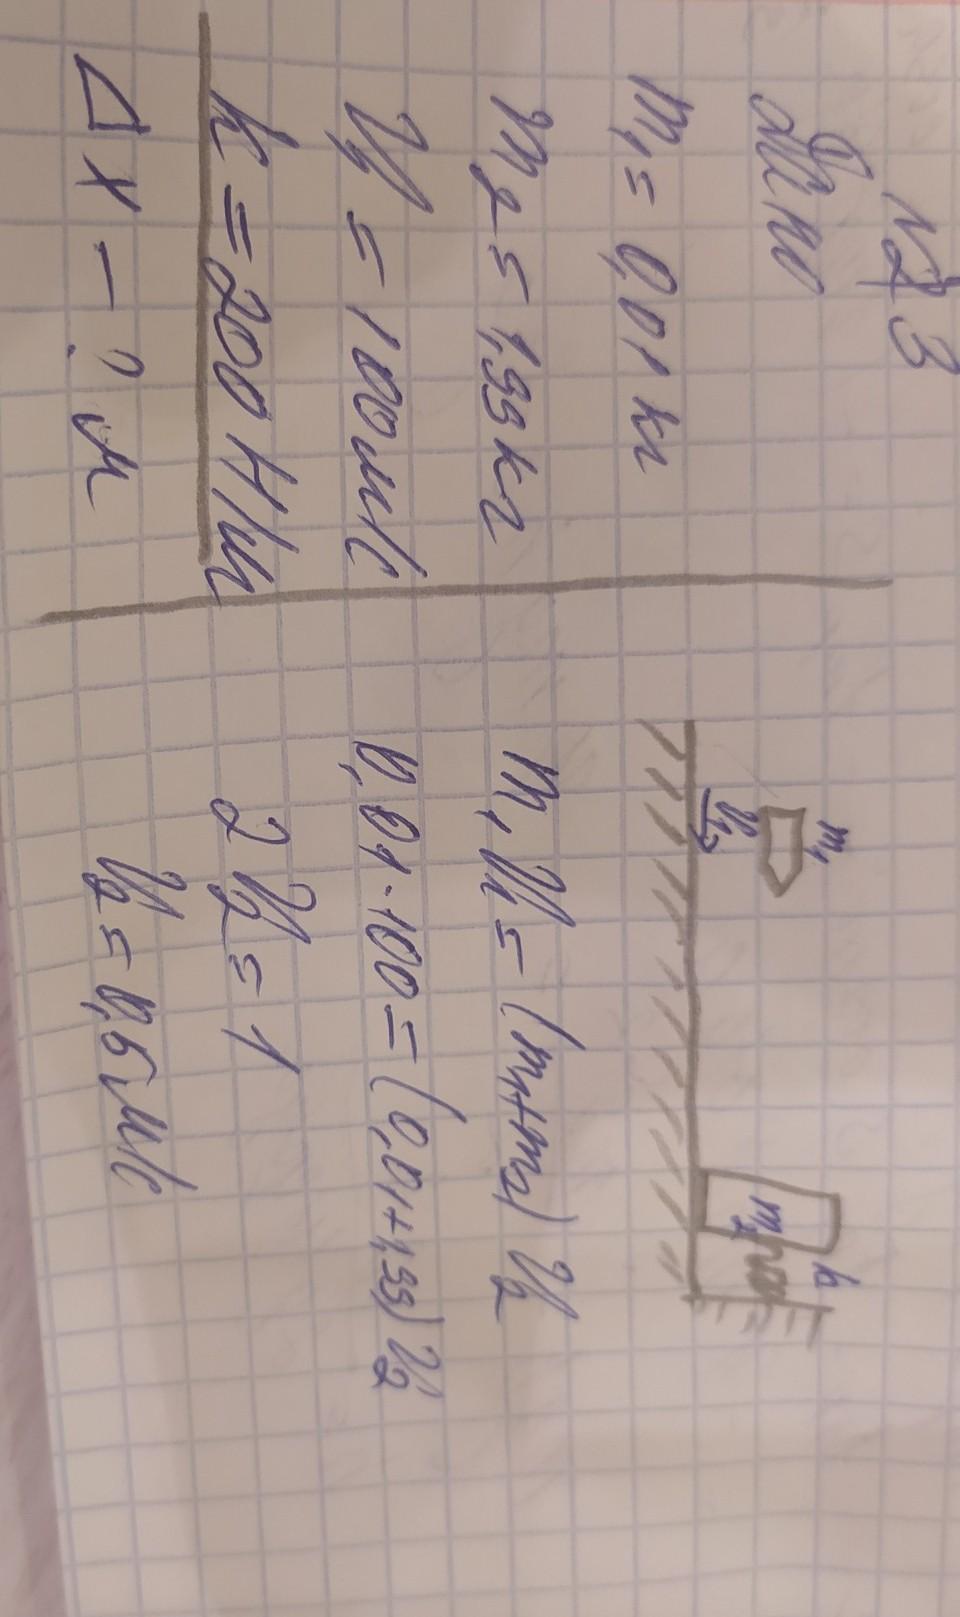 №3
Дано
m₁ = 0,01 кг
m₂ = 1,99 кг
V₁ = 100 м/с
k = 200 Н/м
Δx - ? м
m₁
V₁
m₂
k
m₁V₁ = (m₁+m₂) V₂
0,01·100 = (0,01+1,99) V₂
2 V₂ = 1
V₂ = 0,5 м/с